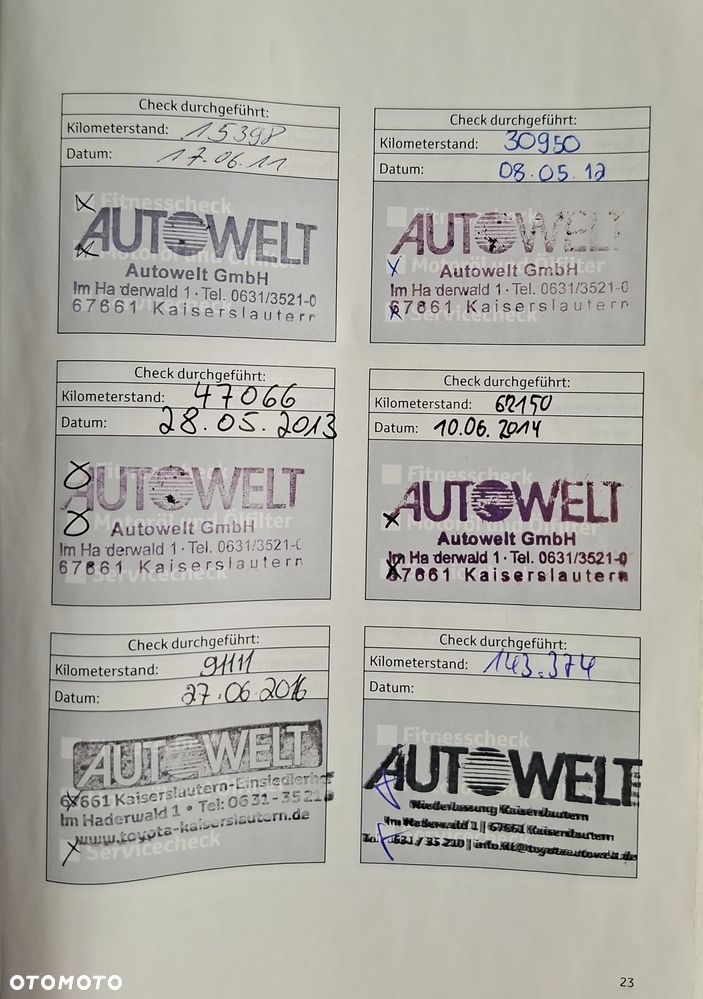 Check durchgeführt:
Kilometerstand: 15398
Datum: 17.06.11
Fitnesscheck
AUTOWELT
Motoröl und Ölfilter
Autowelt GmbH
Im Ha derwald 1 · Tel. 0631/3521-0
67661 Kaiserslautern
Servicecheck
Check durchgeführt:
Kilometerstand: 30950
Datum: 08.05.12
Fitnesscheck
AUTOWELT
Motoröl und Ölfilter
Autowelt GmbH
Im Ha derwald 1 · Tel. 0631/3521-0
67661 Kaiserslautern
Servicecheck
Check durchgeführt:
Kilometerstand: 47066
Datum: 28.05.2013
Fitnesscheck
AUTOWELT
Motoröl und Ölfilter
Autowelt GmbH
Im Ha derwald 1 · Tel. 0631/3521-0
67661 Kaiserslautern
Servicecheck
Check durchgeführt:
Kilometerstand: 62150
Datum: 10.06.2014
Fitnesscheck
AUTOWELT
Motoröl und Ölfilter
Autowelt GmbH
Im Ha derwald 1 · Tel. 0631/3521-0
67661 Kaiserslautern
Check durchgeführt:
Kilometerstand: 91111
Datum: 27.06.2016
AUTOWELT
67661 Kaiserslautern-Einsiedlerhof
Im Haderwald 1 • Tel: 0631-3521
www.toyota-kaiserslautern.de
Servicecheck
Check durchgeführt:
Kilometerstand: 143.374
Datum:
Fitnesscheck
AUTOWELT
Niederlassung Kaiserslautern
Im Haderwald 1 || 67661 Kaiserslautern
0631 / 35 210 | info.kl@toyotaautowelt.de
Servicecheck
OTOMOTO
23